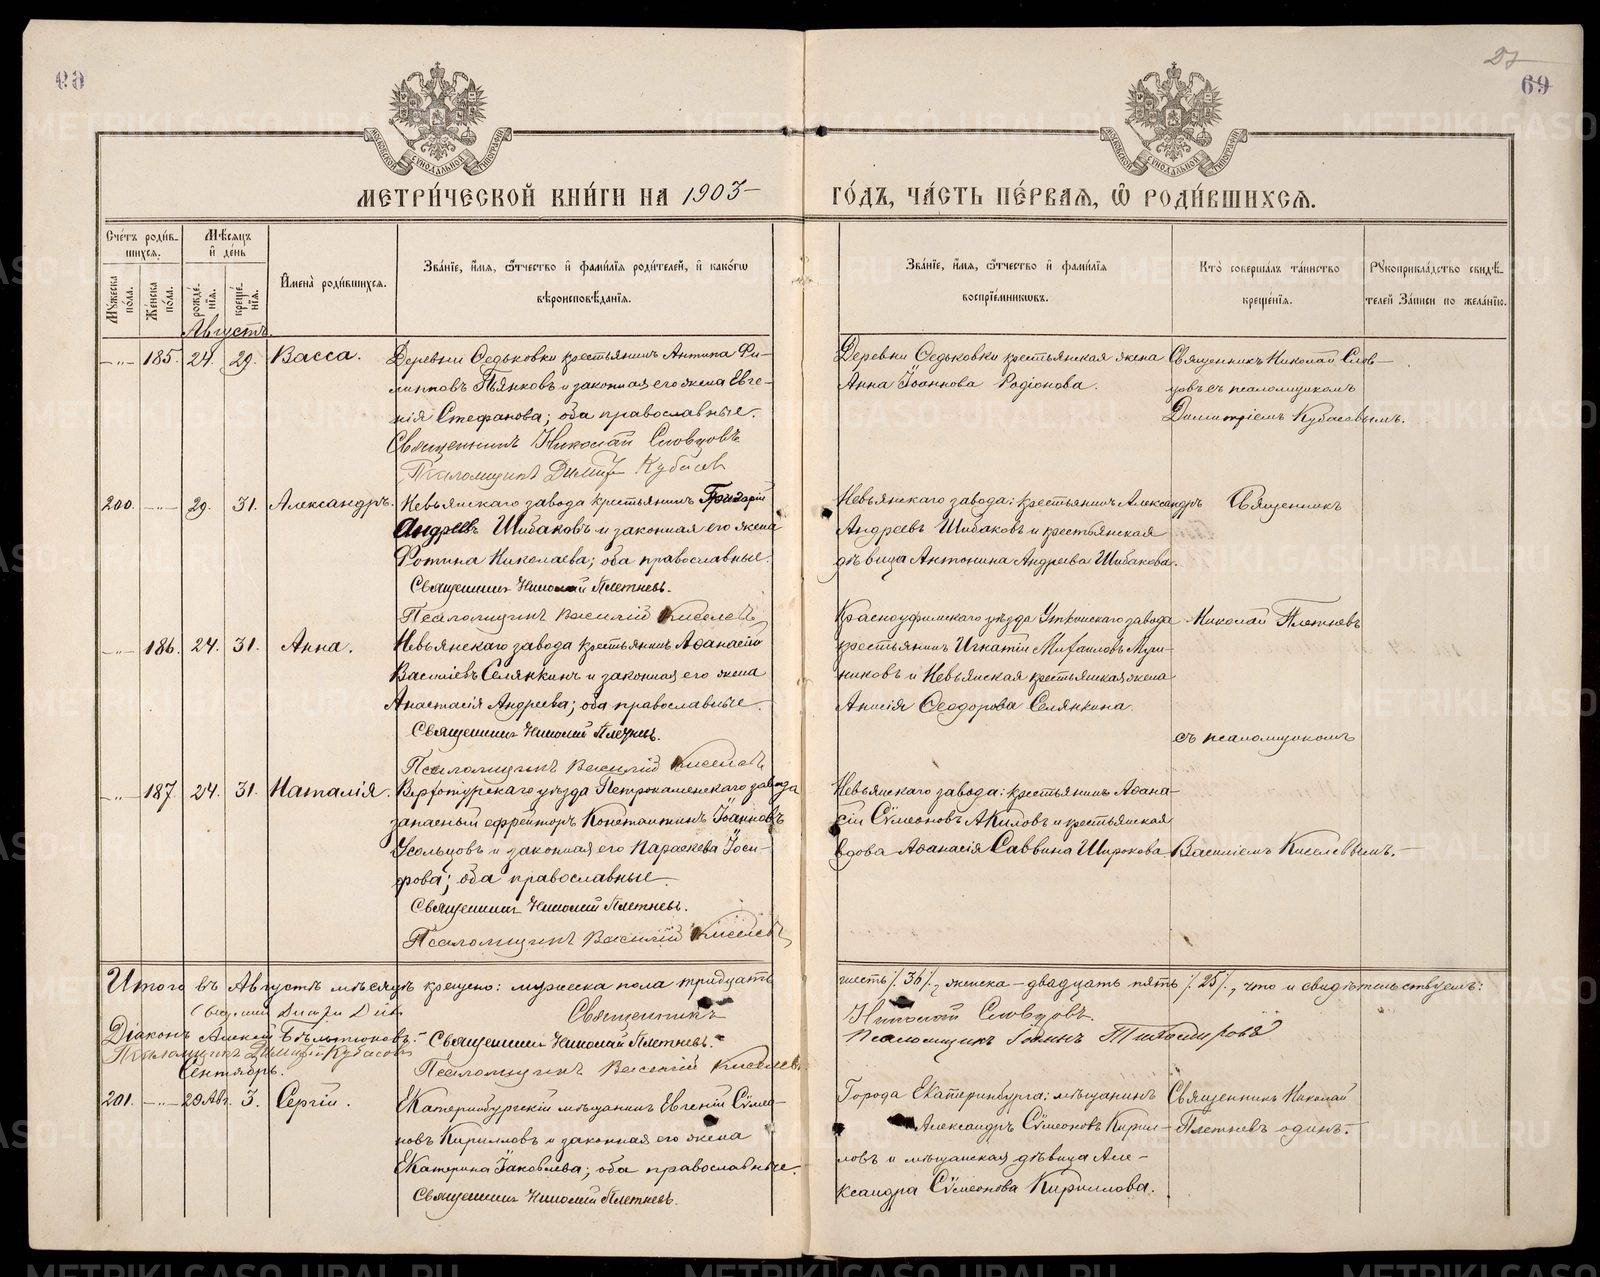 69
МЕТРИ́ЧЕСКОЙ КНИ́ГИ НА 1903
ГО́ДЪ, ЧА́СТЬ ПЕ́РВАЯ, Ѿ РОДИ́ВШИХСЯ.
Сче́тъ роди́в-
шихся.
Мѣ́сяцъ
и҆ де́нь
Мꙋ́жеска
по́ла.
Же́нска
по́ла.
рожде́-
нїя.
креще́-
нїя.
И҆мена̀ роди́вшихся.
Зва́нїе, и҆́мя, ѻ҆́тчество и҆ фами́лїя роди́телей, и҆ како́гѡ
вѣроисповѣ́данїя.
Зва́нїе, и҆́мя, ѻ҆́тчество и҆ фами́лїя
воспрїе́мниковъ.
Кто̀ соверша́лъ та́инство
креще́нїя.
Рꙋкоприкла́дство свидѣ́-
телей за́писи по жела́нїю.
Августъ.
-„- 185. 24. 29. Васса.
Деревни Ѳедьковки крестьянинъ Антипа Фи-
липповъ Пьянковъ и законная его жена Евге-
нія Стефанова; оба православные.
Священникъ Николай Словцовъ
Псаломщикъ Димит. Кубасов
Деревни Ѳедьковки крестьянская жена
Анна Іоаннова Родіонова.
Священникъ Николай Слов-
цовъ съ псаломщикомъ
Димитріемъ Кубасовымъ.
200. -„- 29. 31. Александръ.
Невьянскаго завода крестьянинъ Григорій
Андреевъ Шибаковъ и законная его жена
Фотина Николаева; оба православные.
Священникъ Николай Плетневъ.
Псаломщикъ Василій Киселевъ
Невьянскаго завода: крестьянинъ Александръ
Андреевъ Шибаковъ и крестьянская
дѣвица Антонина Андреева Шибакова.
Священникъ
-„- 186. 24. 31. Анна.
Невьянскаго завода крестьянинъ Аѳанасій
Василіевъ Селянкинъ и законная его жена
Анастасія Андреева; оба православные.
Священникъ Николай Плетневъ.
Псаломщикъ Василій Киселевъ
Красноуфимскаго уѣзда Уткинскаго завода
крестьянинъ Игнатій Михаиловъ
и Невьянская крестьянская жена
Анисія Ѳеодорова Селянкина.
Николай Плетневъ
съ псаломщикомъ
-„- 187. 24. 31. Наталія.
Верхотурскаго уѣзда Петрокаменскаго завода
запасный ефрейторъ Константинъ Іоанновъ
Усольцовъ и законная его Параскева Іоси-
фова; оба православные.
Священникъ Николай Плетневъ.
Псаломщикъ Василій Киселевъ
Невьянскаго завода: крестьянинъ Аѳана-
сій Сѵмеоновъ Акиловъ и крестьянская
вдова Аѳанасія Саввина Широкова.
Василіемъ Киселевымъ.
Итого въ Августѣ мѣсяцѣ крещено: мужеска пола тридцать
шесть /. 36 /., женска – двадцать пять /. 25 /., что и свидѣтельствуемъ:
Священникъ
Николай Словцовъ.
Діаконъ Алексій
Священникъ Николай Плетневъ.
Псаломщикъ Іоаннъ Тихомировъ
Псаломщикъ Димитрій Кубасовъ
Псаломщикъ Василій Киселевъ
Сентябрь.
201. -„- 20 Авг. 3. Сергій.
Екатеринбургскій мѣщанинъ Евгеній Сѵмео-
новъ Кирилловъ и законная его жена
Екатерина Іаковлева; оба православные.
Священникъ Николай Плетневъ.
Города Екатеринбурга: мѣщанинъ
Александръ Сѵмеоновъ Кирил-
ловъ и мѣщанская дѣвица Але-
ксандра Сѵмеонова Кириллова.
Священникъ Николай
Плетневъ одинъ.